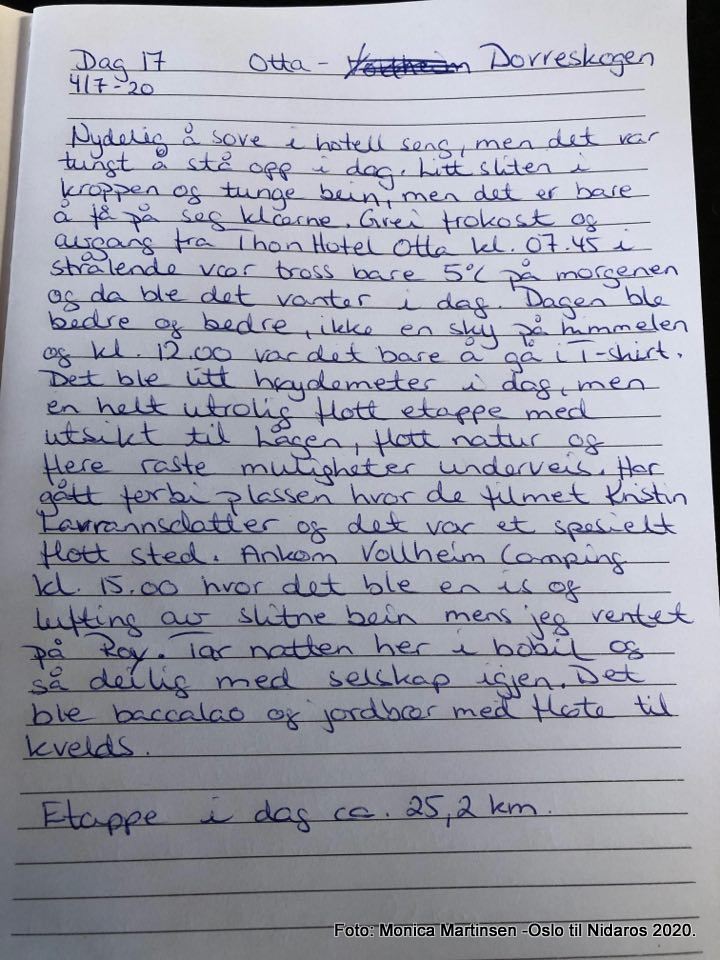 Dag 17 Otta - Dovreskogen
4/7-20
Nydelig å sove i hotell seng, men det var
tungt å stå opp i dag. Litt sliten i
kroppen og tunge bein, men det er bare
å få på seg klærne. Grei frokost og
avgang fra Thon Hotel Otta kl. 07.45 i
strålende vær tross bare 5°C på morgenen
og da ble det vanter i dag. Dagen ble
bedre og bedre, ikke en sky på himmelen
og kl. 12.00 var det bare å gå i T-shirt.
Det ble litt høydemeter i dag, men
en helt utrolig flott etappe med
utsikt til Lågen, flott natur og
flere raste muligheter underveis. Har
gått forbi plassen hvor de filmet Kristin
Lavrannsdatter og det var et spesielt
flott sted. Ankom Vollheim Camping
kl. 15.00 hvor det ble en is og
lufting av slitne bein mens jeg ventet
på Roy. Tar natten her i bobil og
så deilig med selskap igjen. Det
ble baccalao og jordbær med fløte til
kvelds.
Etappe i dag ca. 25,2 km.
Foto: Monica Martinsen -Oslo til Nidaros 2020.